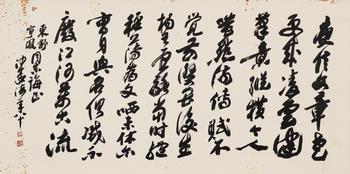 庾信文章老
更成凌雲健
筆意縱橫今人
嗤點流傳賦不
覺前賢畏後生
楊王盧駱當時體
輕薄為文哂未休爾
曹身與名俱滅不
廢江河萬古流
沙孟海